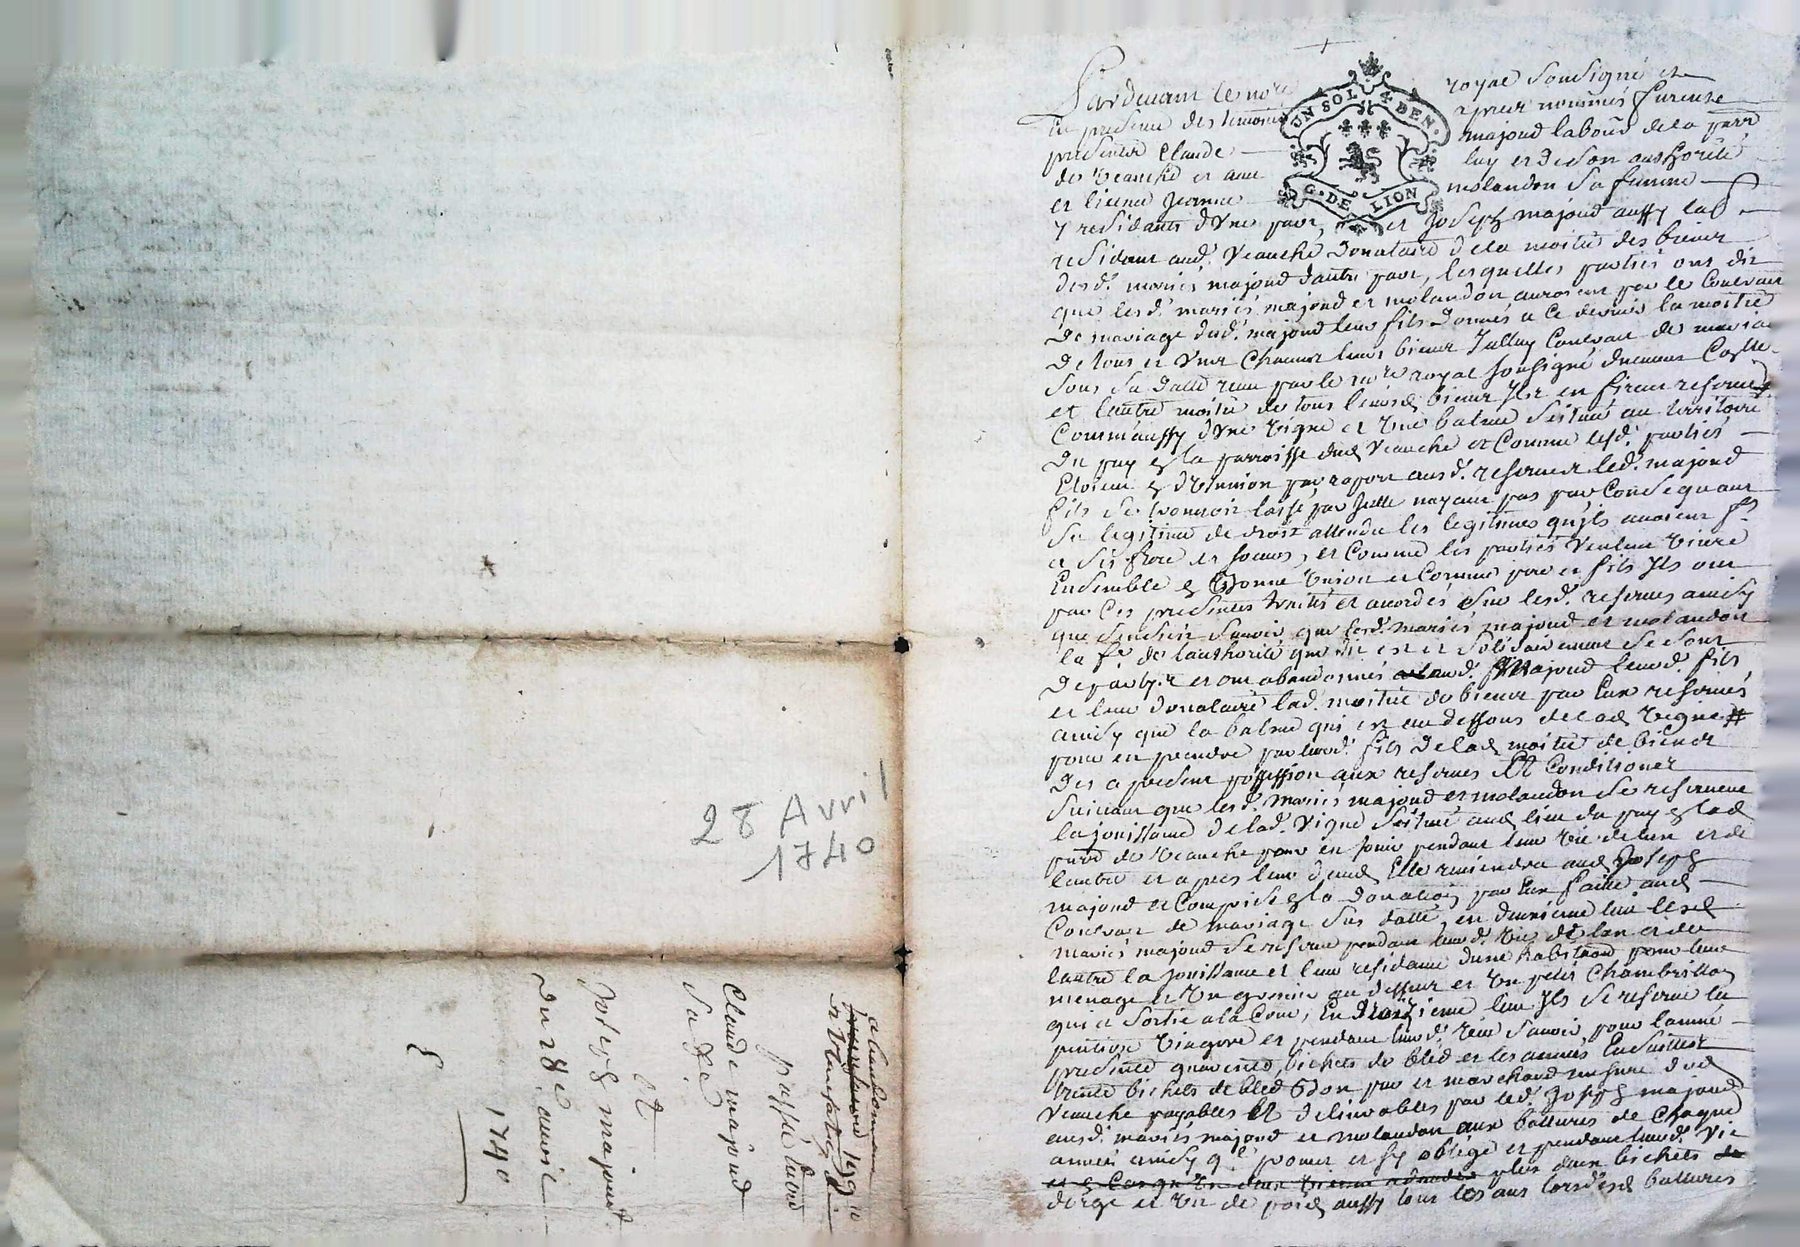 28 Avril
1740
abandonnem
passé entre
Claude majoud
sa fe
et
Joseph majoud
du 28e avril
1740
UN SOL 4 DEN.
G. DE LION
Pardevant le nore royal soussigné et
en presence des temoins apres nommés furent
presents Claude majoud labour de la parr
de Veauche et avec luy et de son authorité
et licence Jeanne molandon sa femme
y residants d'vne part, et Joseph majoud aussy lab
residant aud. Veauche donataire de la moitié des biens
desd. mariés majoud d'autre part, lesquelles parties ont dit
que lesd. mariés majoud et molandon auroient par le Contract
de mariage dud. majoud leur fils donnés a ce dernier la moitié
de tous et vns chacuns leurs biens Contract de mariage
sous sa datte receu par le nore royal soussigné
et l'autre moitié de tous leursd biens Ils en firent reserve
Comme aussy d'vne vigne et vne balme scituée au territoire
du puy & la parroisse dud Veauche et Comme lesd. parties
par raport ausd. reserves led. majoud
fils se par Icelle n'ayant pas par Consequant
sa legitime de droit attendu les legitimes qu'ils avoient
a ses frere et soeurs, et Comme les parties veulent vivre
Ensemble & bonne vnion et Comme pere et fils Ils ont
par Ces presentes traités et accordés sur lesd. reserves ainsy
que s'ensuit savoir que lesd. mariés majoud et molandon
la fe de l'authorité que dit est et solidairement se sont
departys et ont abandonnés aud. majoud leurd. fils
et leur donataire lad. moitié de biens par Eux reservés
ainsy que la balme qui est au dessous de lad vigne #
pour en prendre par leurd. fils de lad moitié de biens
des a present possession aux reserves Et Conditions
suivant que lesd. mariés majoud et molandon se reservent
la jouissance de lad. vigne scituée aud lieu du puy & lad
parr de Veauche pour en jouir pendant leur vie de l'un et de
l'autre et apres leur deces Elle reviendra aud Joseph
majoud et Comprise & la donation par Eux faitte aud
Contract de mariage sus datté, en deuxieme lieu lesd
mariés majoud se reserve pendant leurd. vie de l'un et de
l'autre la jouissance et leur residence d'une pour leur
menage et vn grenier au dessus et vn petit Chambrillon
qui a sortie a la Cour, En troizieme lieu Ils se reserve la
pention viagere et pendant leurd. vie savoir pour l'année
presente quarente bichets de bled et les années Ensuittes
trente bichets de bled bon pur et marchand mesure dud
Veauche payables Et delivrables par led. Joseph majoud
ausd. mariés majoud et molandon aux battures de Chaque
année ainsy ql promet et s'y oblige et pendant leurd. vie
plus deux bichets
d'orge et vn de pois aussy tous les ans lorsdesd battures